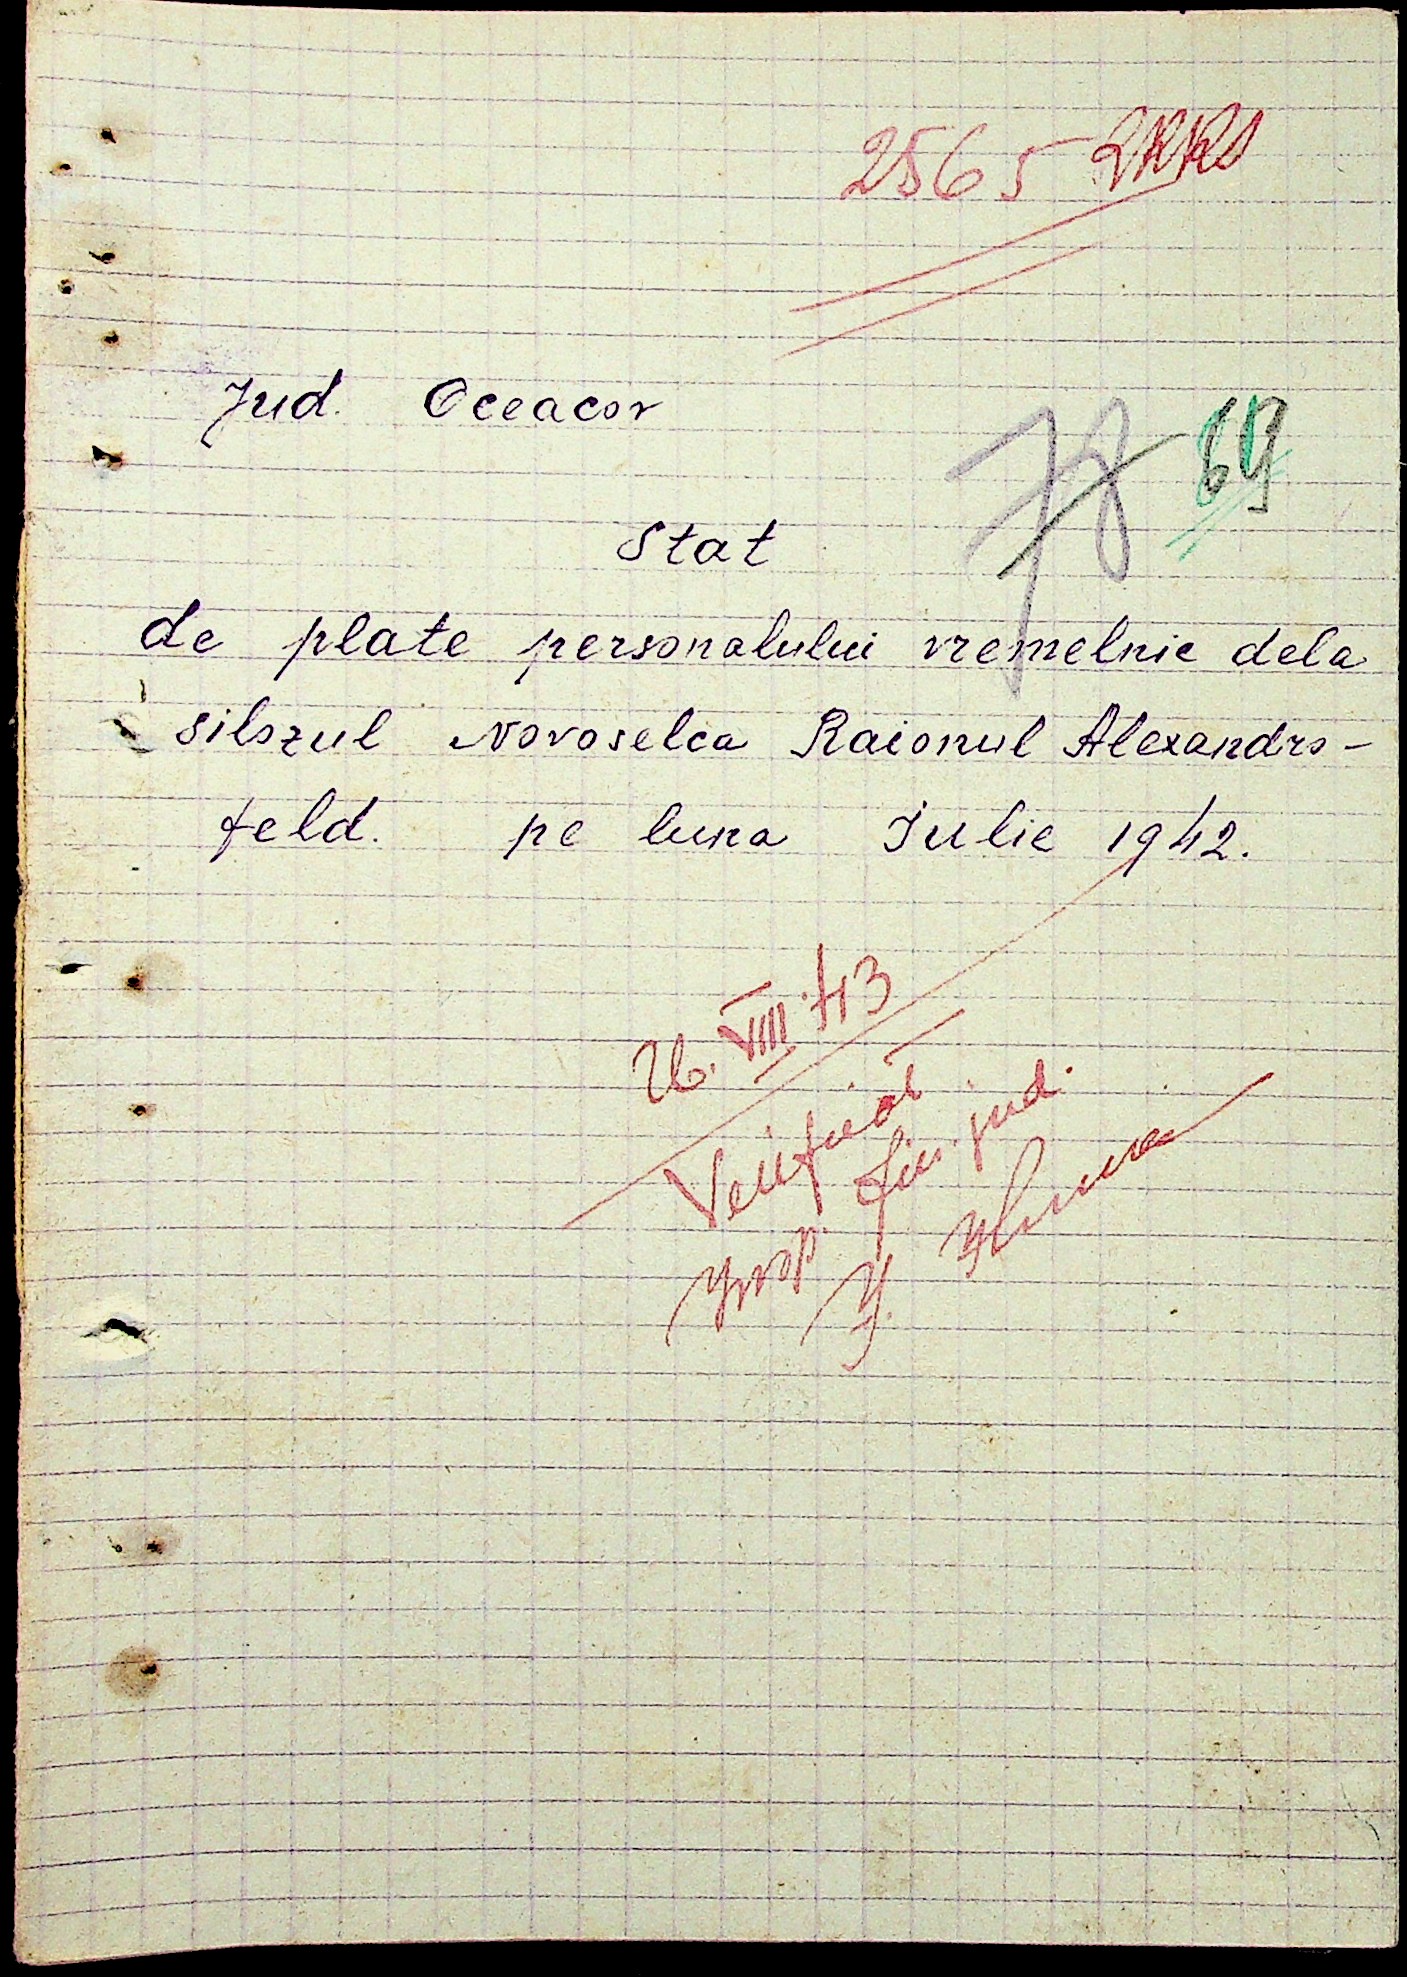 2565 RKKS
Jud. Oceacov
78 69
Stat
de plate personalului vremelnic dela
silozul Novoselca Raionul Alexandro-
feld. pe luna Iulie 1942.
26. VIII. 43
Verificat
insp. fin. jud.